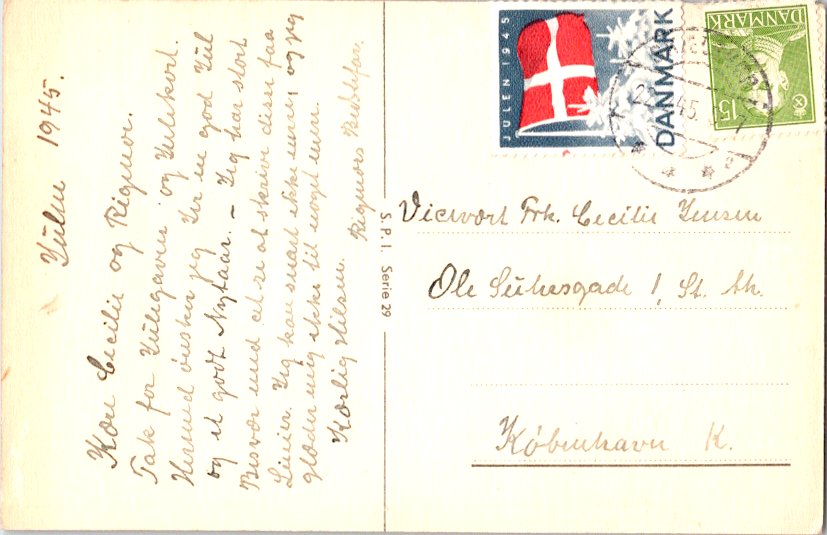 Julen 1945.
Kære Cecilie og Rigmor.
Tak for Julegaven og Julekort.
Hermed ønsker jeg Jer en god Jul
og et godt Nytaar. – Jeg har stort
Besvær med at se at skrive disse faa
Linier. Jeg kan snart ikke mere, og jeg
glæder mig ikke til noget mere.
Kærlig Hilsen. Rigmors Bedstefar.
S.P.I. Serie 29
JULEN 1945
DANMARK
DANMARK
15
Vicevært Frk. Cecilie Jensen
Ole Suhesgade 1, St. th.
København K.